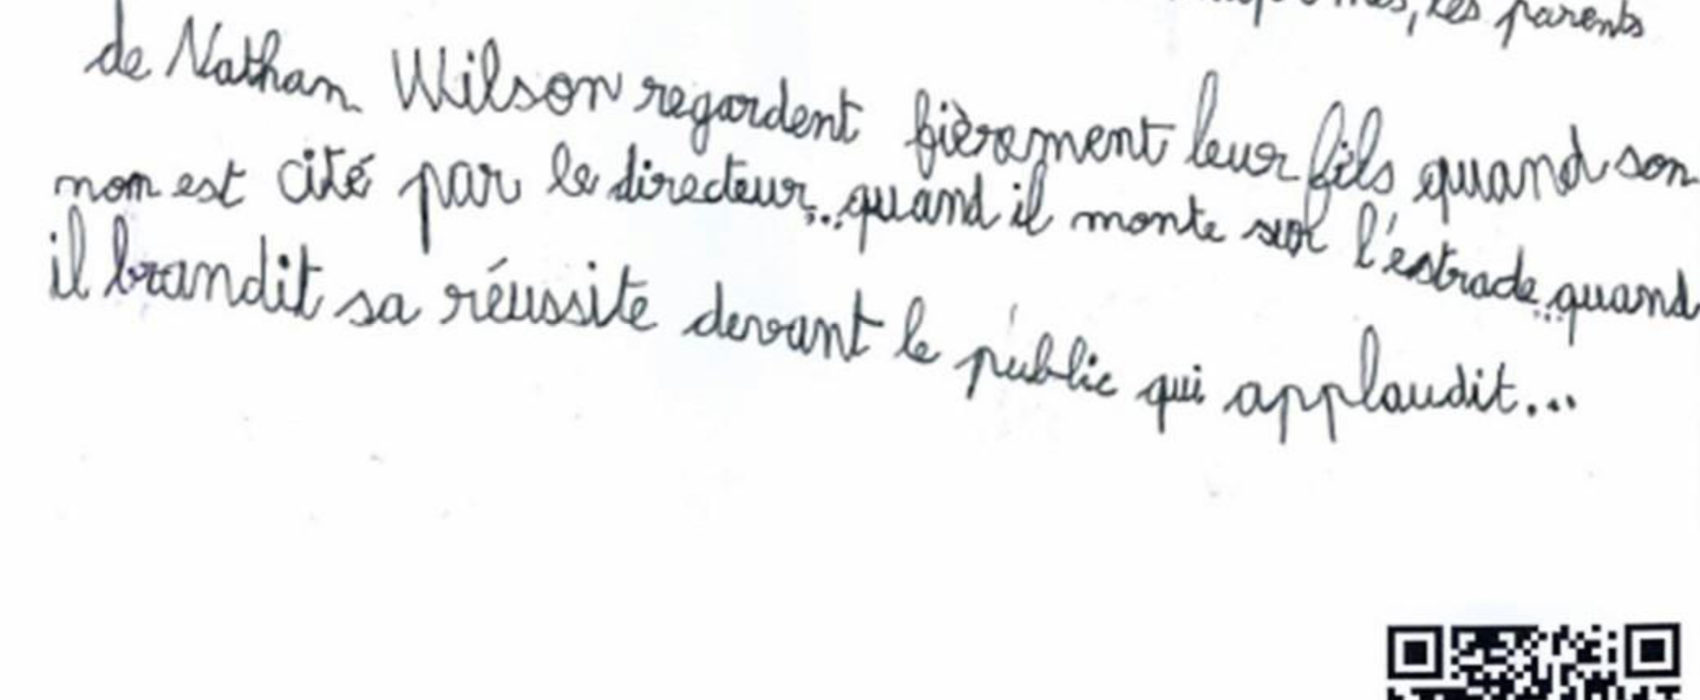 les parents
de Nathan Wilson regardent fièrement leur fils quand son
nom est cité par le directeur... quand il monte sur l'estrade... quand
il brandit sa réussite devant le public qui applaudit...